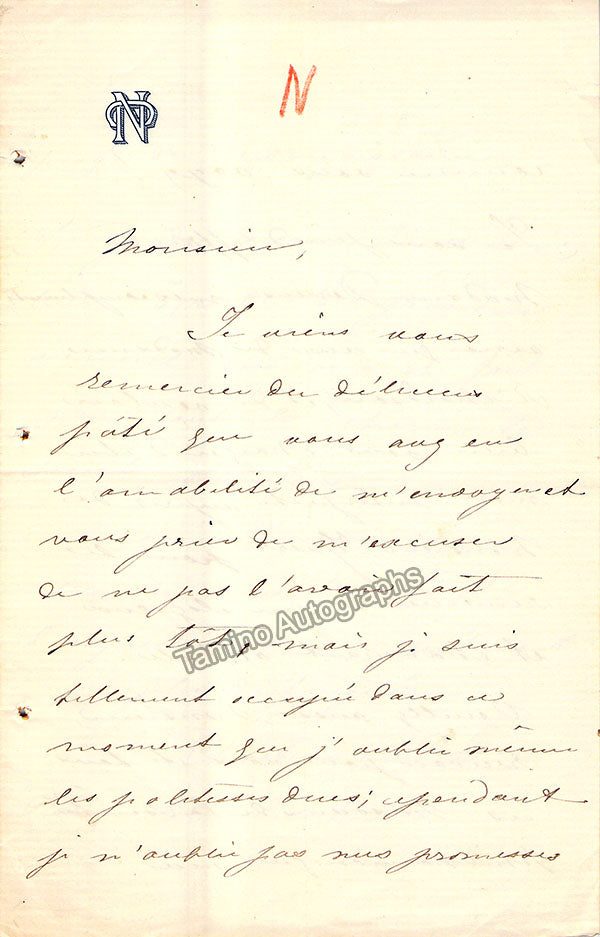 N
NPO
Monsieur,
Je viens vous
remercier du délicieux
pâté que vous avez eu
l'amabilité de m'envoyer et
vous prier de m'excuser
de ne pas l'avoir fait
plus tôt, mais je suis
tellement occupée dans ce
moment que j'oublie même
les politesses dues; cependant
je n'oublie pas mes promesses
Tamino Autographs